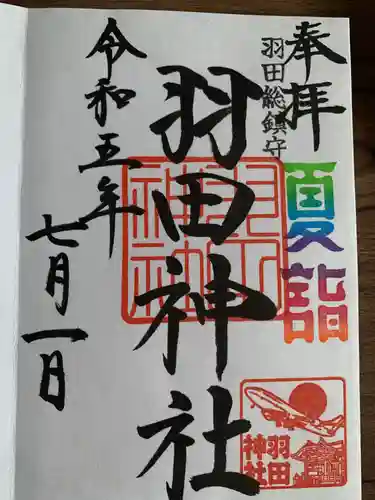 奉拝
羽田総鎮守
夏詣
羽田神社
羽田神社
羽田
神社
令和五年
七月一日